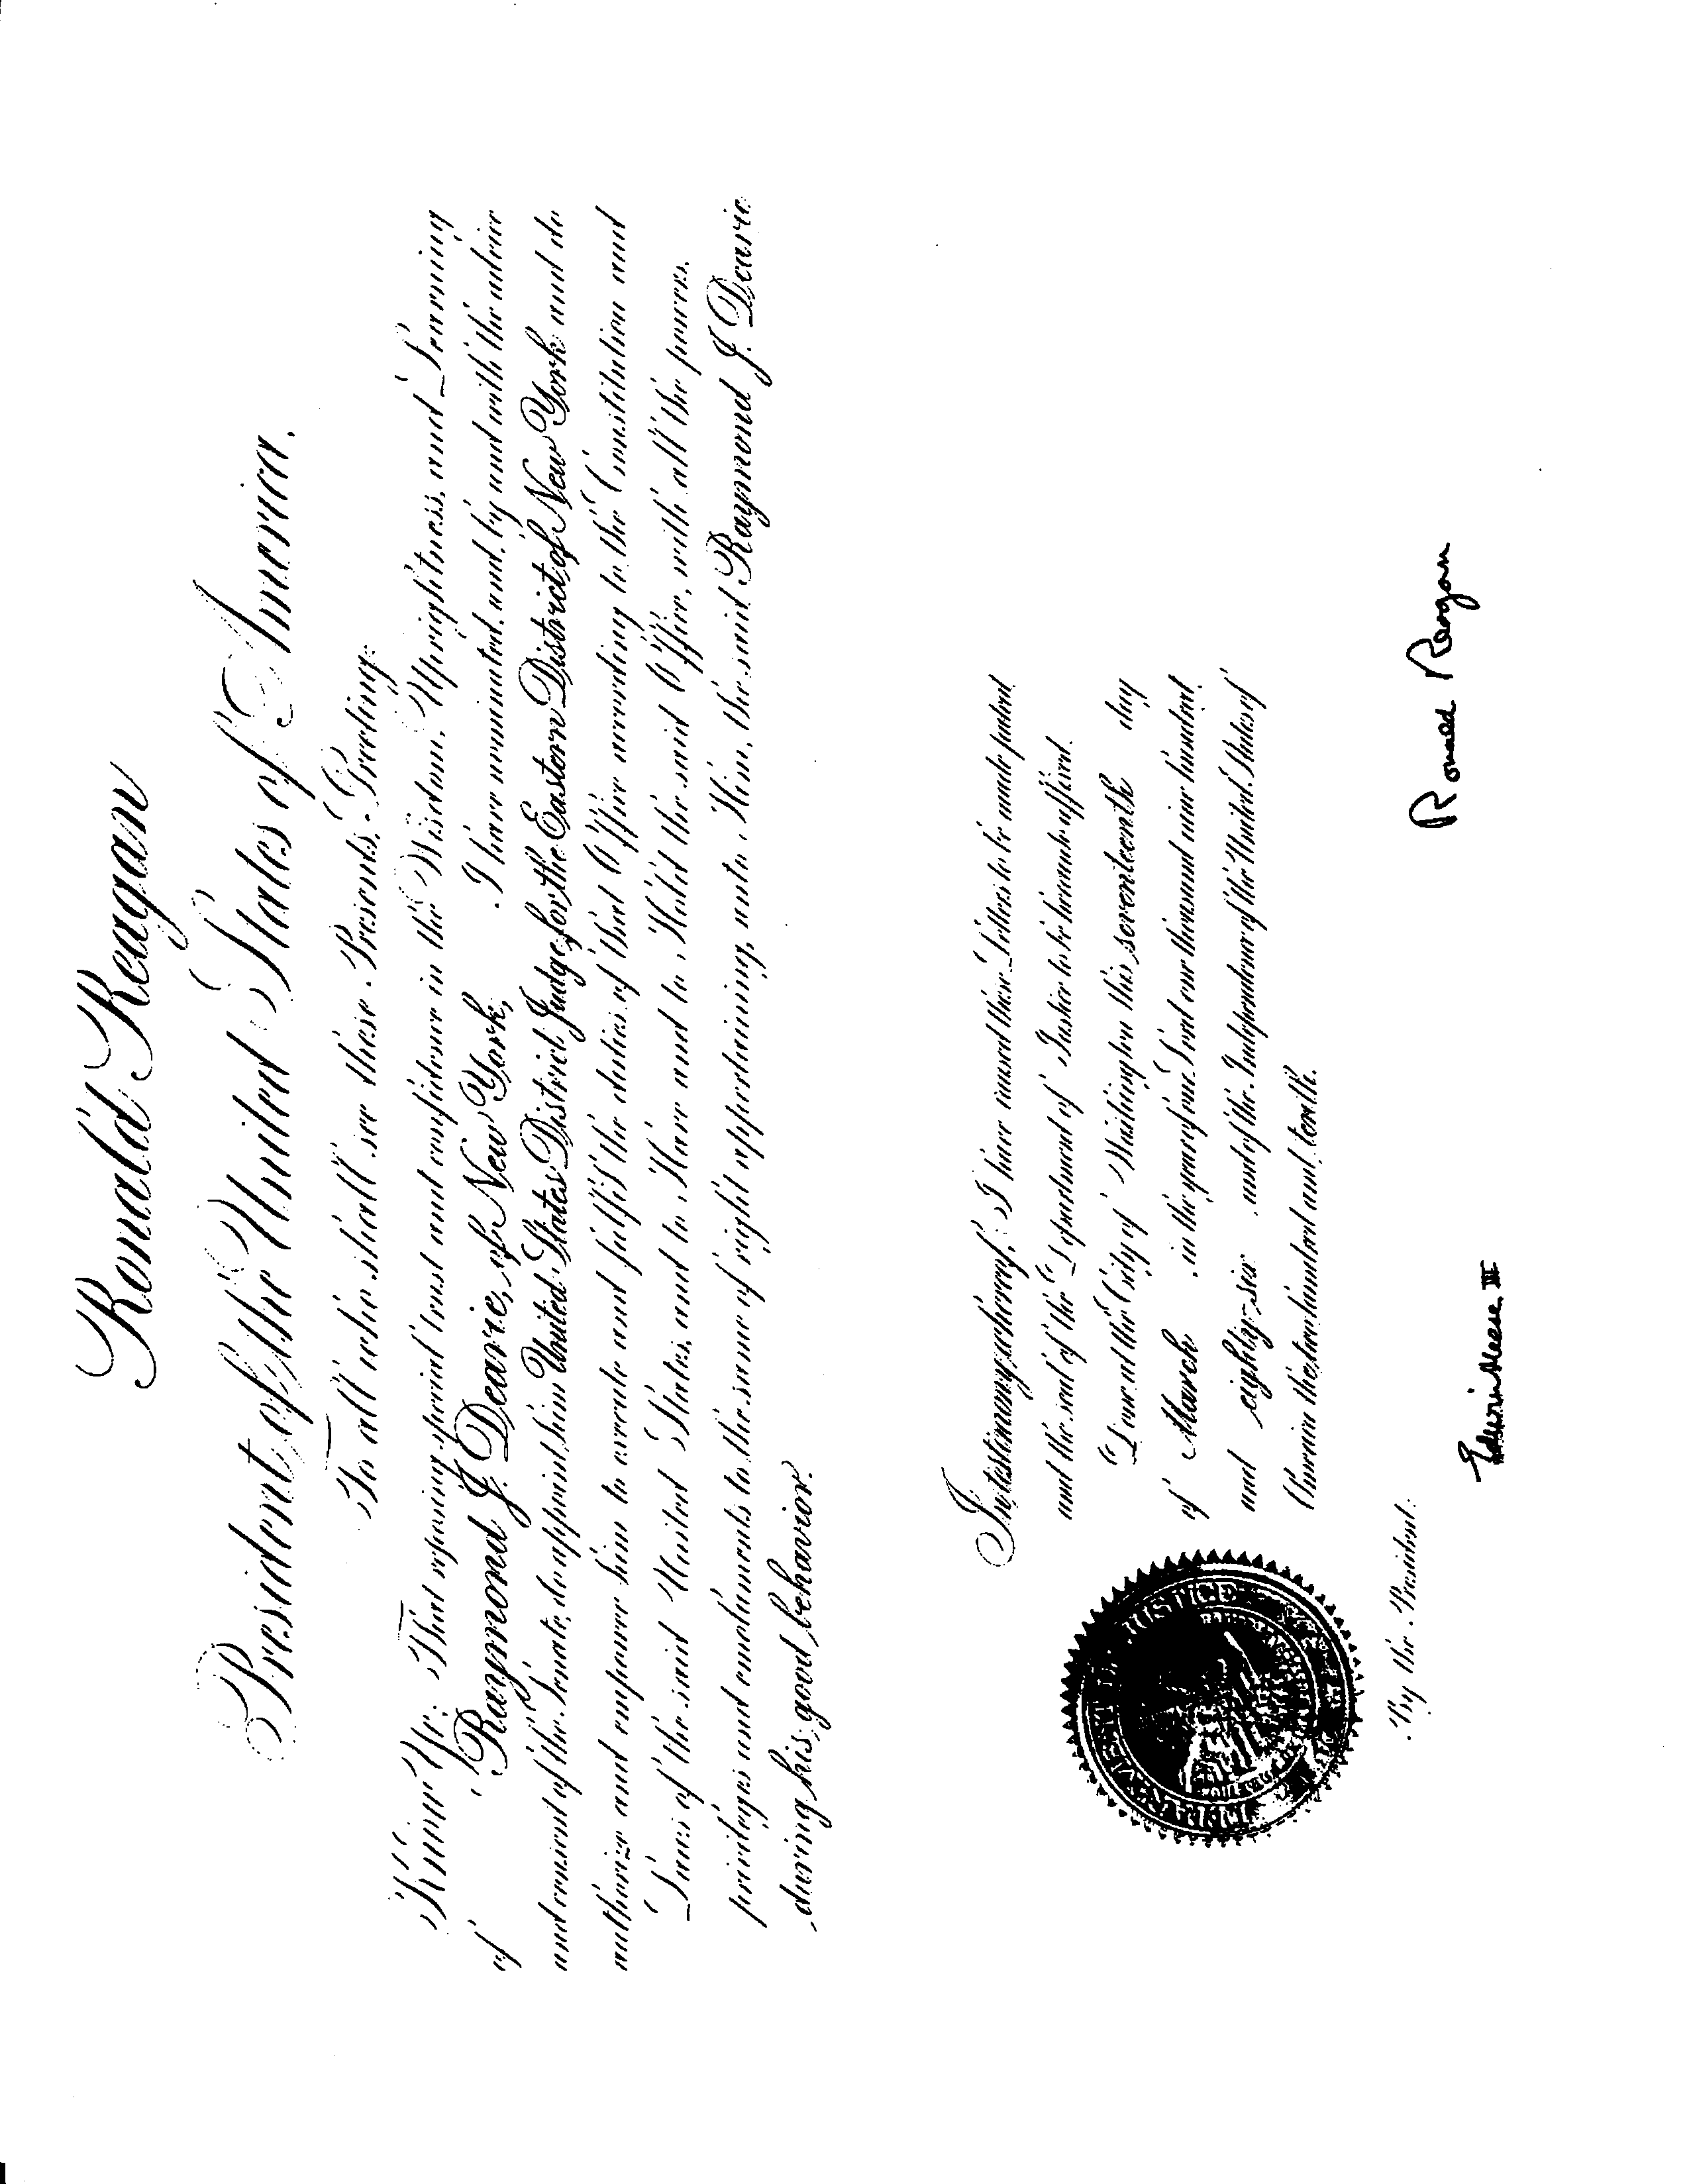 Ronald Reagan
President of the United States of America,
To all who shall see these Presents, Greeting:
Know Ye: That reposing special trust and confidence in the Wisdom, Uprightness, and Learning
of Raymond J. Dearie, of New York, I have nominated, and, by and with the advice
and consent of the Senate, do appoint him United States District Judge for the Eastern District of New York and do
authorize and empower him to execute and fulfil the duties of that Office according to the Constitution and
Laws of the said United States, and to Have and to Hold the said Office, with all the powers,
privileges and emoluments to the same of right appertaining, unto Him, the said Raymond J. Dearie
during his good behavior.
In testimony whereof, I have caused these Letters to be made patent
and the seal of the Department of Justice to be hereunto affixed.
Done at the City of Washington this seventeenth day
of March in the year of our Lord one thousand nine hundred
and eighty-six and of the Independence of the United States of
America the two hundred and tenth.
By the President:
Ronald Reagan
Edwin Meese III